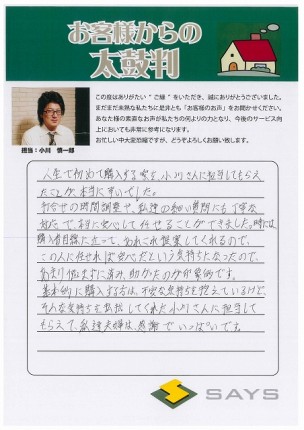 お客様からの
太鼓判
この度はありがたい“ご縁”をいただき、誠にありがとうございました。
まだまだ未熟な私たちに是非とも「お客様のお声」をお聞かせください。
あなた様の素直なお声が私たちの何よりの力となり、今後のサービス向
上においても非常に参考になります。
お忙しい中大変恐縮ですが、どうぞよろしくお願い致します。
担当：小川 慎一郎
人生で初めて購入する家を、小川さんに担当してもらえ
たことが、本当に幸いでした。
打合せの時間調整や、私達の細い質問にも丁寧な
対応で、本当に安心して任せることができました。時には
購入者目線に立って、あれこれ提案してくれるので、
この人に任せれば安心だという気持ちになったので、
あまり悩まずに済み、助かったのが印象的です。
基本的に購入する方は、不安な気持ちを抱えているけど、
そんな気持ちを払拭してくれた小川さんに担当して
もらえて、私達夫婦は、感謝でいっぱいです。
SAYS